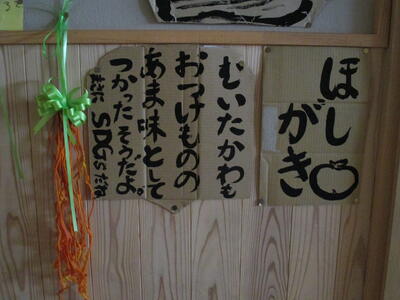 ほし
がき
むいたかわも
おつけものの
あま味として
つかったそうだよ。
SDGsだね